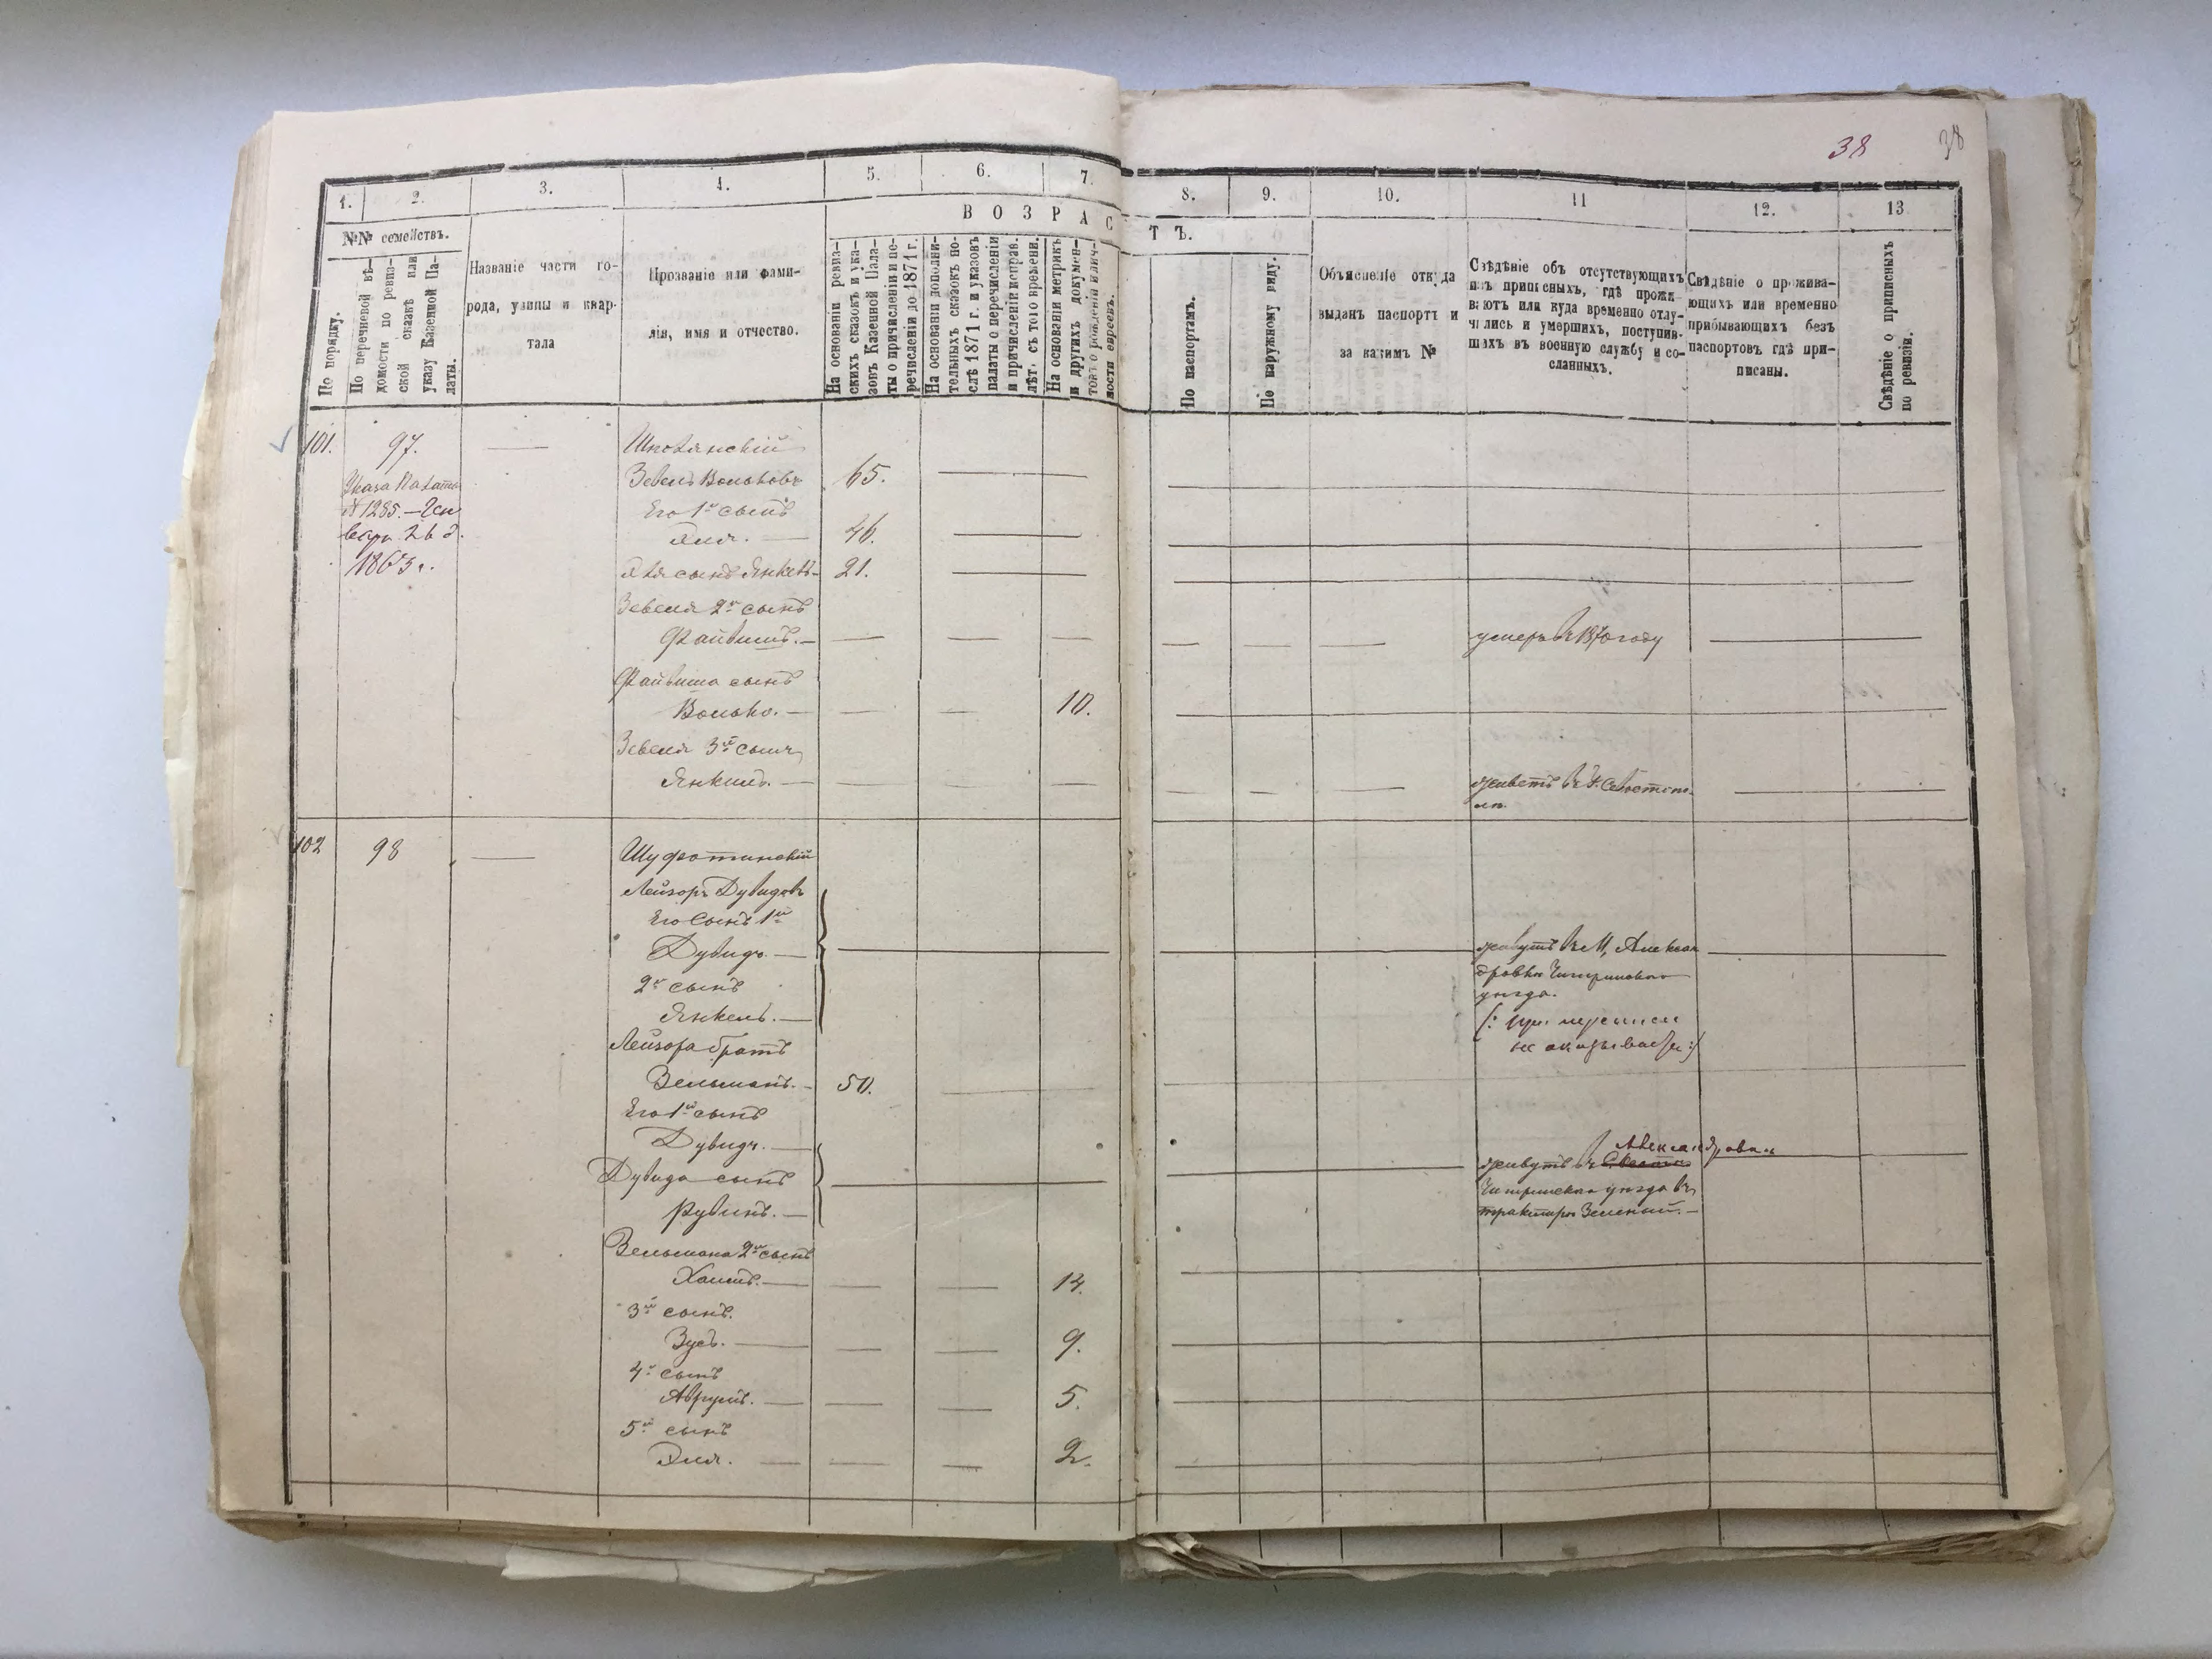 38
38
1.
2.
3.
4.
5.
6.
7.
8.
9.
10.
11
12.
13
№№ семействъ.
В О З Р А С
Т Ъ.
По порядку.
По перечневой вѣ-
домости по ревиз-
ской сказкѣ или
указу Казенной Па-
латы.
Названіе части го-
рода, улицы и квар-
тала
Прозваніе или фами-
лія, имя и отчество.
На основаніи ревиз-
скихъ сказокъ и ука-
зовъ Казенной Пала-
ты о причисленіи и пе-
речисленіи до 1871 г.
На основаніи дополни-
тельныхъ сказокъ по-
слѣ 1871 г. и указовъ
палаты о перечисленіи
и причисленіи исправ.
лѣт. съ того времени.
На основаніи метрикъ
и другихъ докумен-
товъ о рожденіи и лич-
ности евреевъ.
По паспортамъ.
По наружному виду.
Объясненіе откуда
выданъ паспортъ и
за какимъ №
Свѣдѣніе объ отсутствующихъ
изъ приписныхъ, гдѣ прожи-
ваютъ или куда временно отлу-
чились и умершихъ, поступив-
шихъ въ военную службу и со-
сланныхъ.
Свѣдѣніе о прожива-
ющихъ или временно
прибывающихъ безъ
паспортовъ гдѣ при-
писаны.
Свѣдѣніе о приписныхъ
по ревизіи.
101. 97. — Шполянскій
Указа Палаты Зевель Вольковъ 65.
№ 1285. — Ген Его 1й сынъ
варя 26 д. Эля. — 46.
1863 г. Эля сынъ Янкель — 21.
Зевеля 2й сынъ
Файвишъ. — умеръ въ 1870 году
Файвиша сынъ
Волько. — 10.
Зевеля 3й сынъ
Янкель. — живетъ въ г. Севастопо-
лѣ.
102 98 —
Лейзоръ Дувидовъ
Его Сынъ 1й
Дувидъ. — живутъ въ М. Алексан
2й сынъ дровкѣ Чигиринскаго
уѣзда.
Янкель. —
Лейзора братъ
Вельманъ. — 50.
Его 1й сынъ
Дувидъ. — Александровкѣ
живутъ въ
Дувида сынъ Чигиринскаго уѣзда въ
Рувинъ. — трактирѣ Зеленый. —
Вельмана 2й сынъ
Хаимъ. — 14.
3й сынъ.
Зусь. — 9.
4й сынъ
Аврумъ. — 5.
5й сынъ
Эля. — 2.